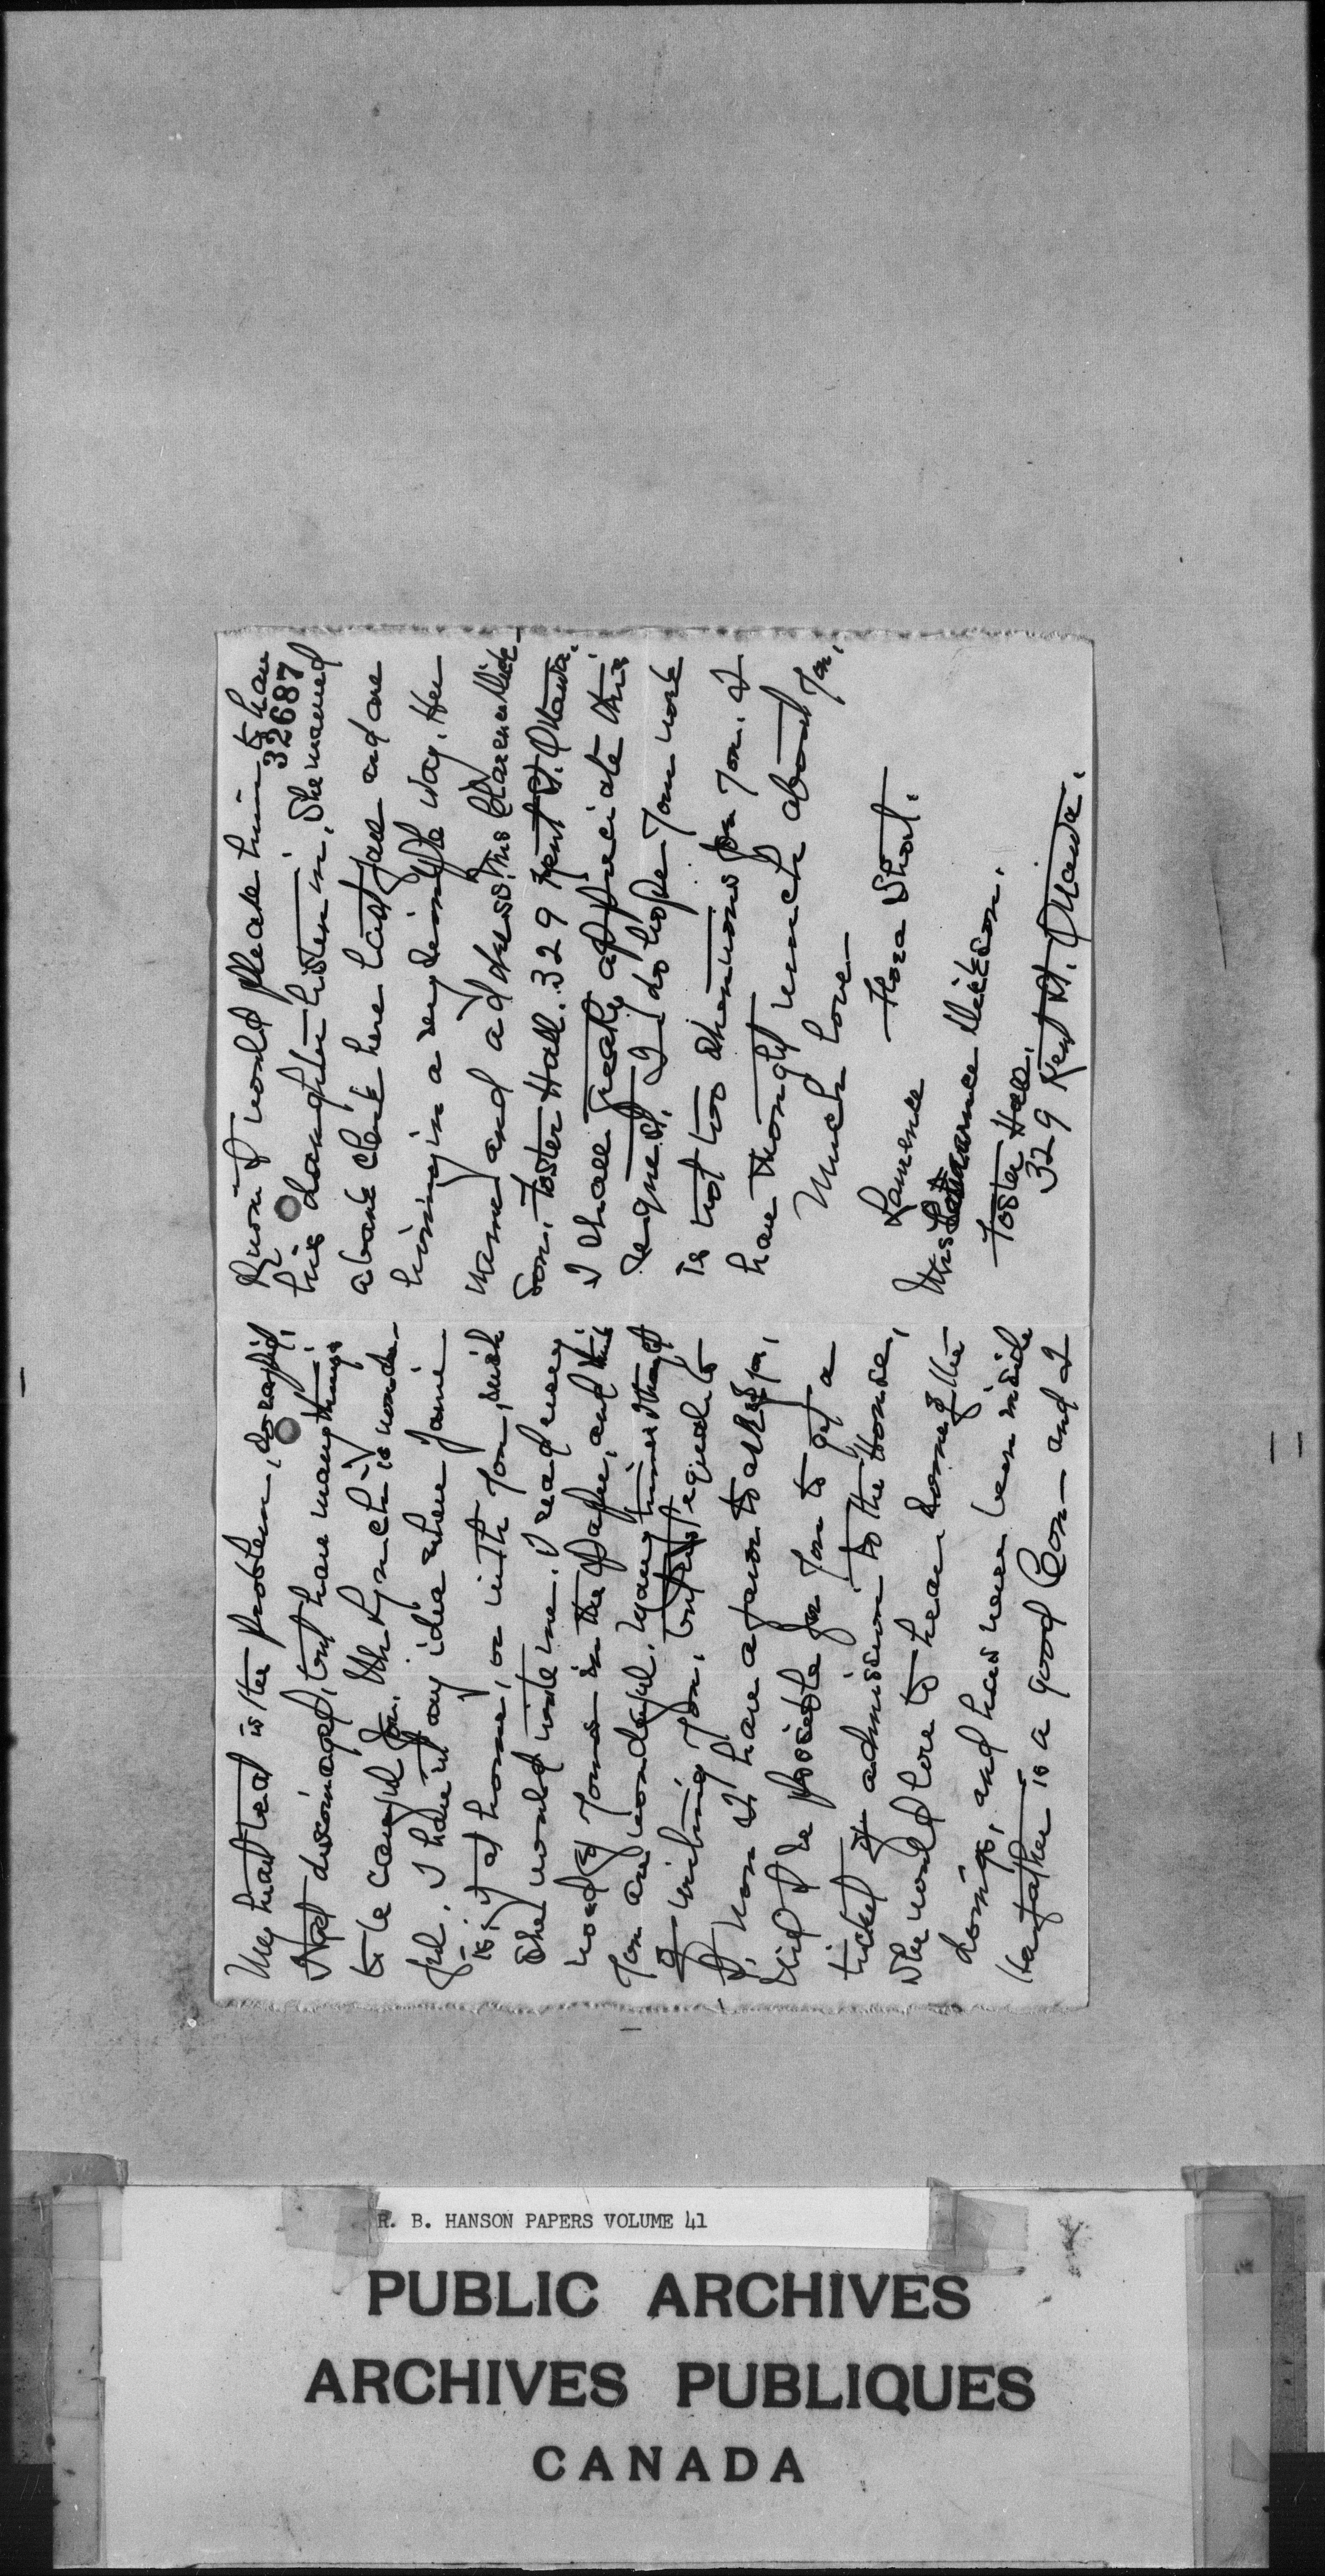 My heart lead is the problem, so rapid,
Not discouraged, but have many things
to be careful for. Mr Lynch is wonder-
ful. I haven't any idea where Janie
is, if at home, or with you, wish
she would write me. I read every
word of yours in the paper, and think
you are wonderful. Many times I thought
of writing you, but not equal to
it. Now I have a favor to ask of you,
Will it be possible for you to get a
ticket of admission to the House,
She would love to hear some of the
doings, and has never been inside
Her father is a good Con— and I
Know it would please him to have
32687
his daughter listen in. She married
a bank clerk here last fall and are
living in a very simple way. Her
name and address, Mrs Clarence
son, Foster Hall. 329 Kent St. Ottawa.
I shall greatly appreciate this
request. I do hope your work
is not too strenuous for you. I
have thought much about you,
Much love—
Flora Shout.
Lawrence
Mrs
Foster Hall.
329 Kent St. Ottawa.
R. B. HANSON PAPERS VOLUME 41
PUBLIC ARCHIVES
ARCHIVES PUBLIQUES
CANADA